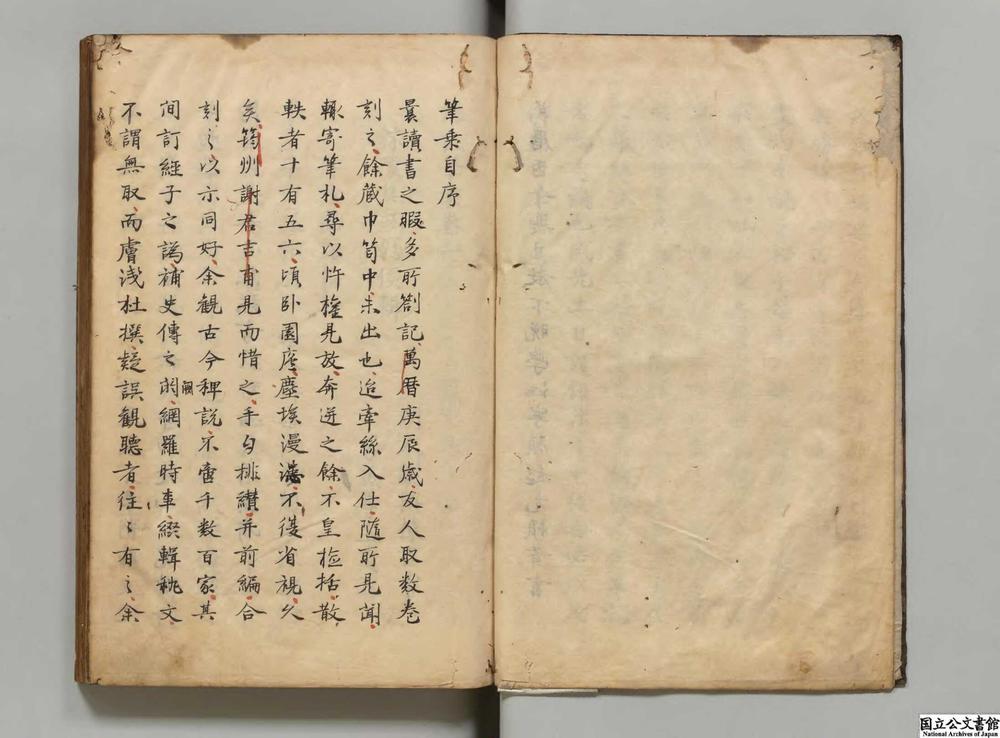 筆乗自序
曩讀書之暇多所劄記萬暦庚辰歳友人取数巻
刻之餘蔵巾笥中未出也迨牽絲入仕随所見聞
輙寄筆札尋以忤權見放奔迸之餘不皇檢括散
軼者十有五六頃卧園廬塵埃漫漶不復省視久
矣筠州謝君吉甫見而惜之手自排纉并前編合
刻之以示同好余観古今稗説不啻千数百家其
間訂經子之譌補史傳之闕網羅時事綴輯秇文
不謂無取而膚浅杜撰疑誤観聴者往〻有之余
国立公文書館
National Archives of Japan